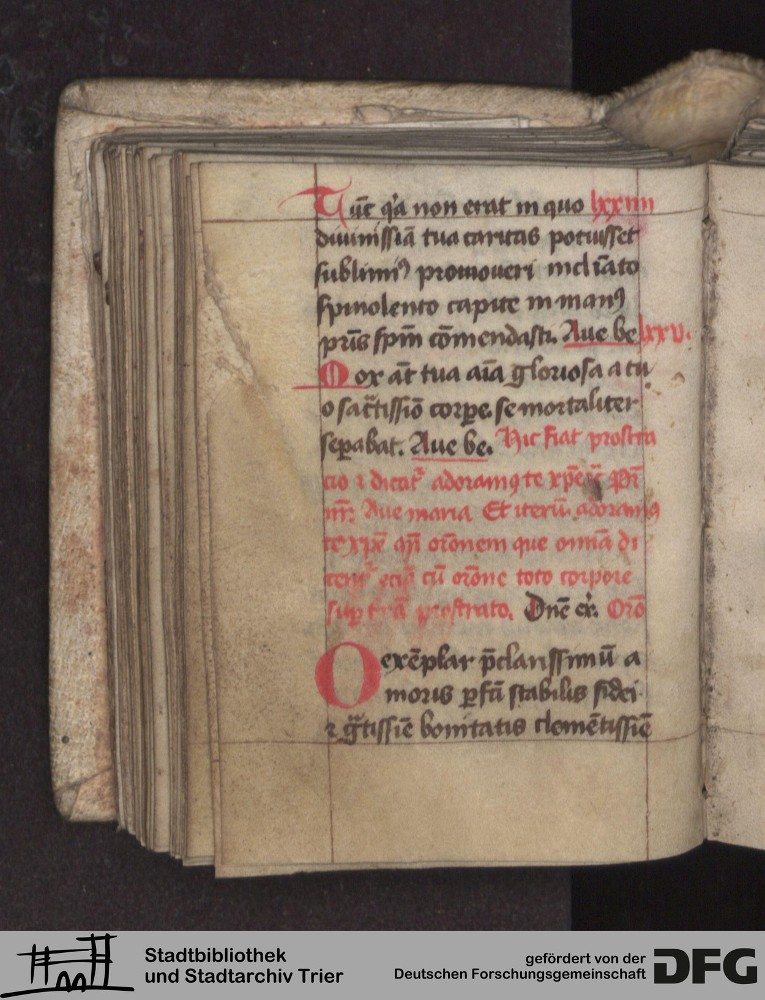 Tūc q̇a non erat in quo lxxiiii
diuinissīa tua caritas potuisset
sublimiꝰ promoueri incliāto
spinolento capite in manꝰ
pr̄is spm̄ cōmendasti. Aue be lxxv.
Mox āt tua aīa gloriosa a tu
o sāctissīo corꝑe se mortaliter
seꝑabat. Aue be. Hic fiat prostra
cio ⁊ dicatr̄ adoramꝰ te xp̄e
Aue maria Et iterū adoramꝰ
te xp̄e orōnem que omīa di
cū orōne toto corpore
prostrato. Dn̄e ex. Orō
O exēplar p̄clarissimū a
moris ꝑfcī stabilis fidei
⁊ gͣtissīe bonitatis clemētissīe
Stadtbibliothek
und Stadtarchiv Trier
gefördert von der
Deutschen Forschungsgemeinschaft DFG